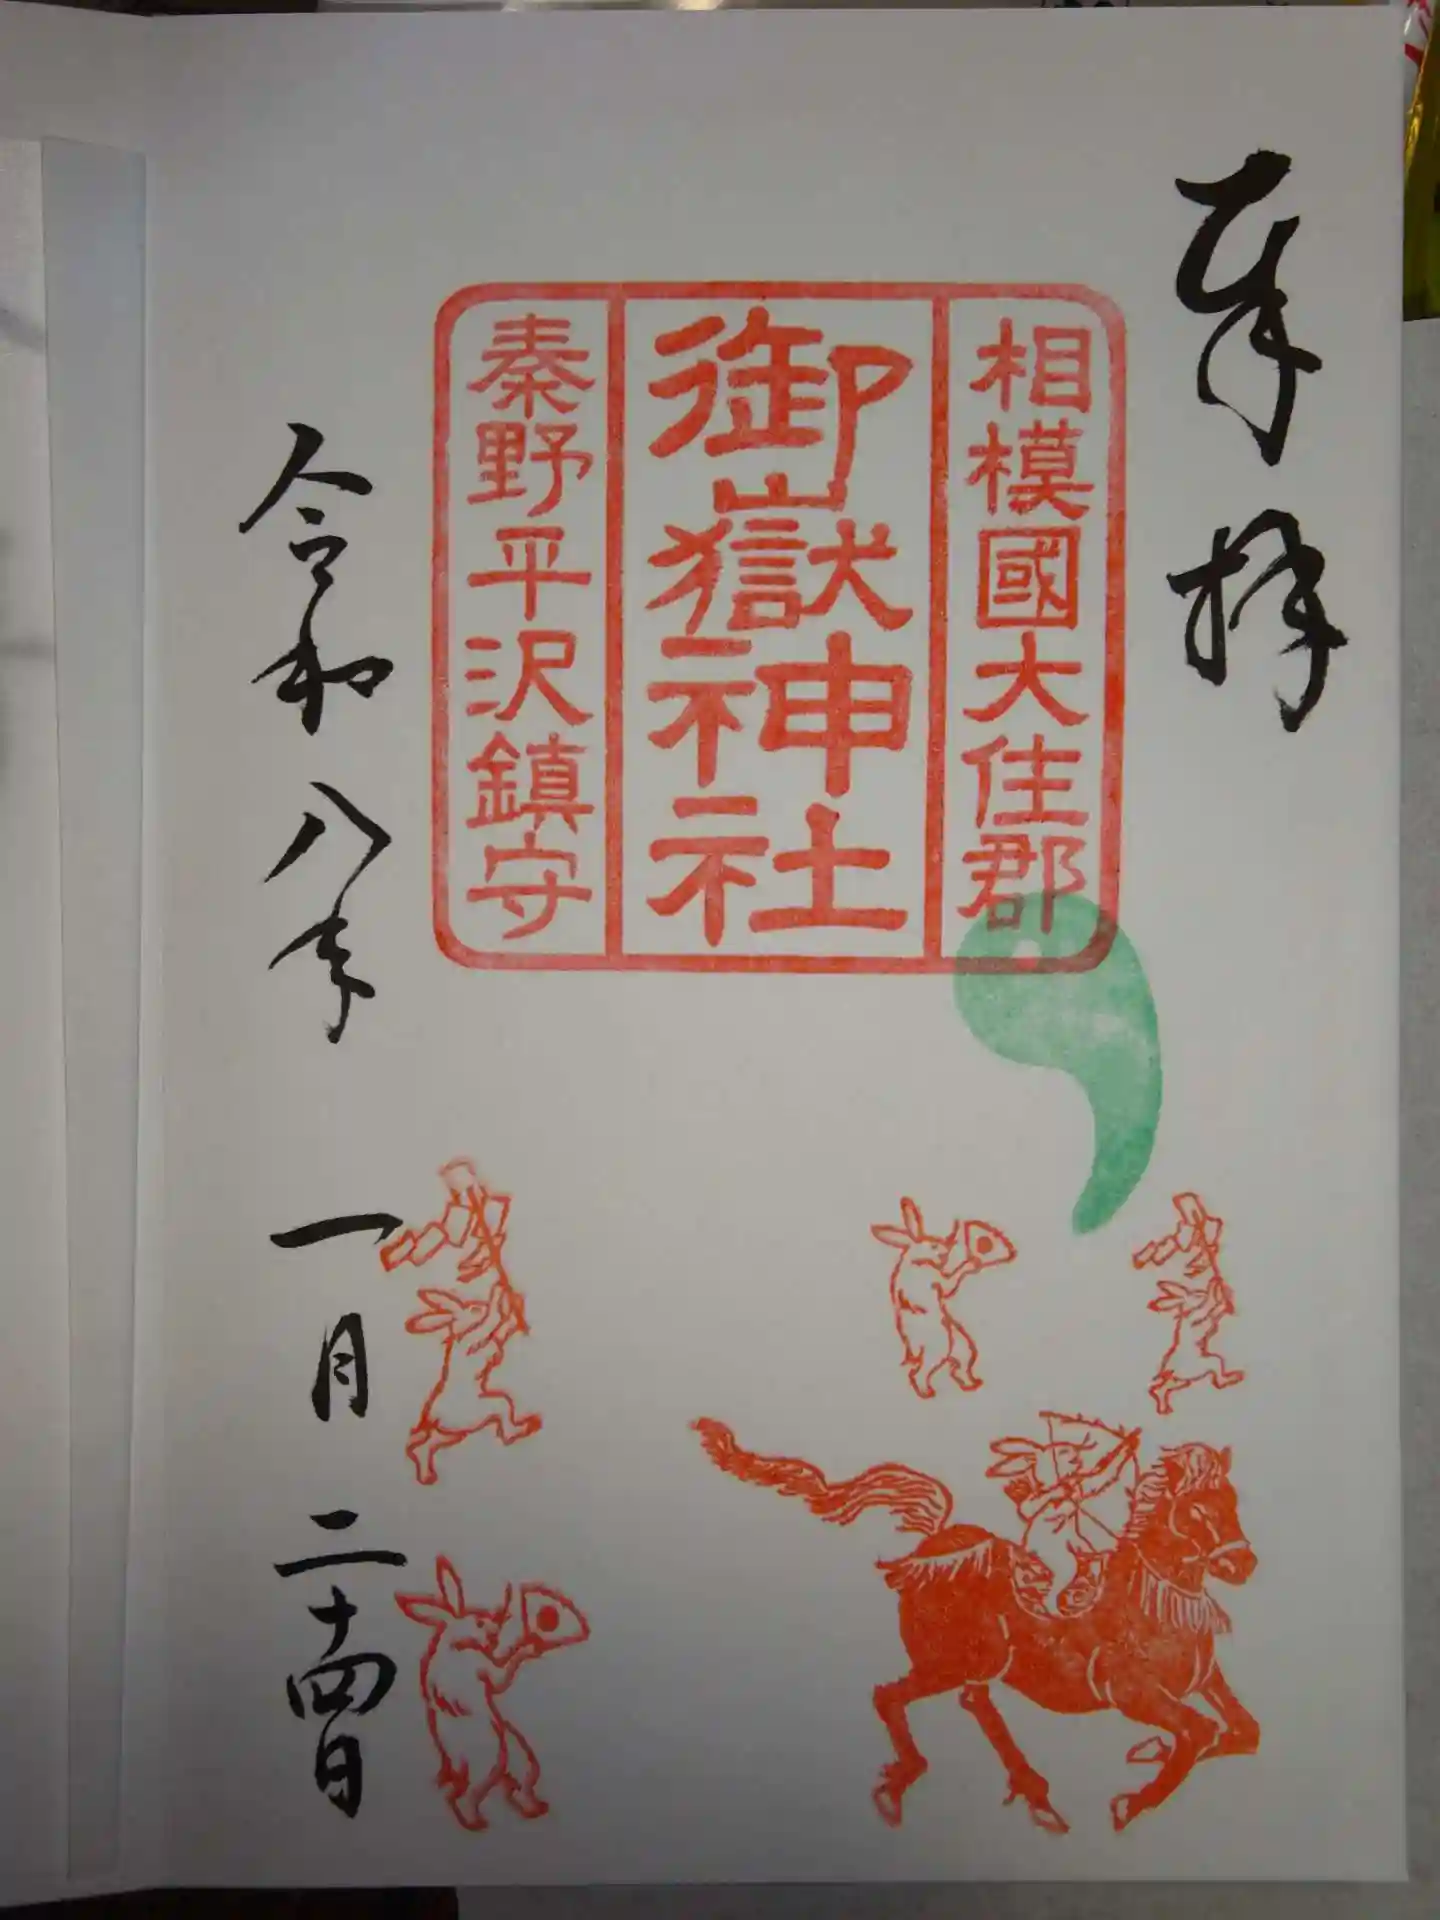 奉拝
相模國大住郡
御嶽神社
秦野平沢鎮守
令和八年一月二十四日